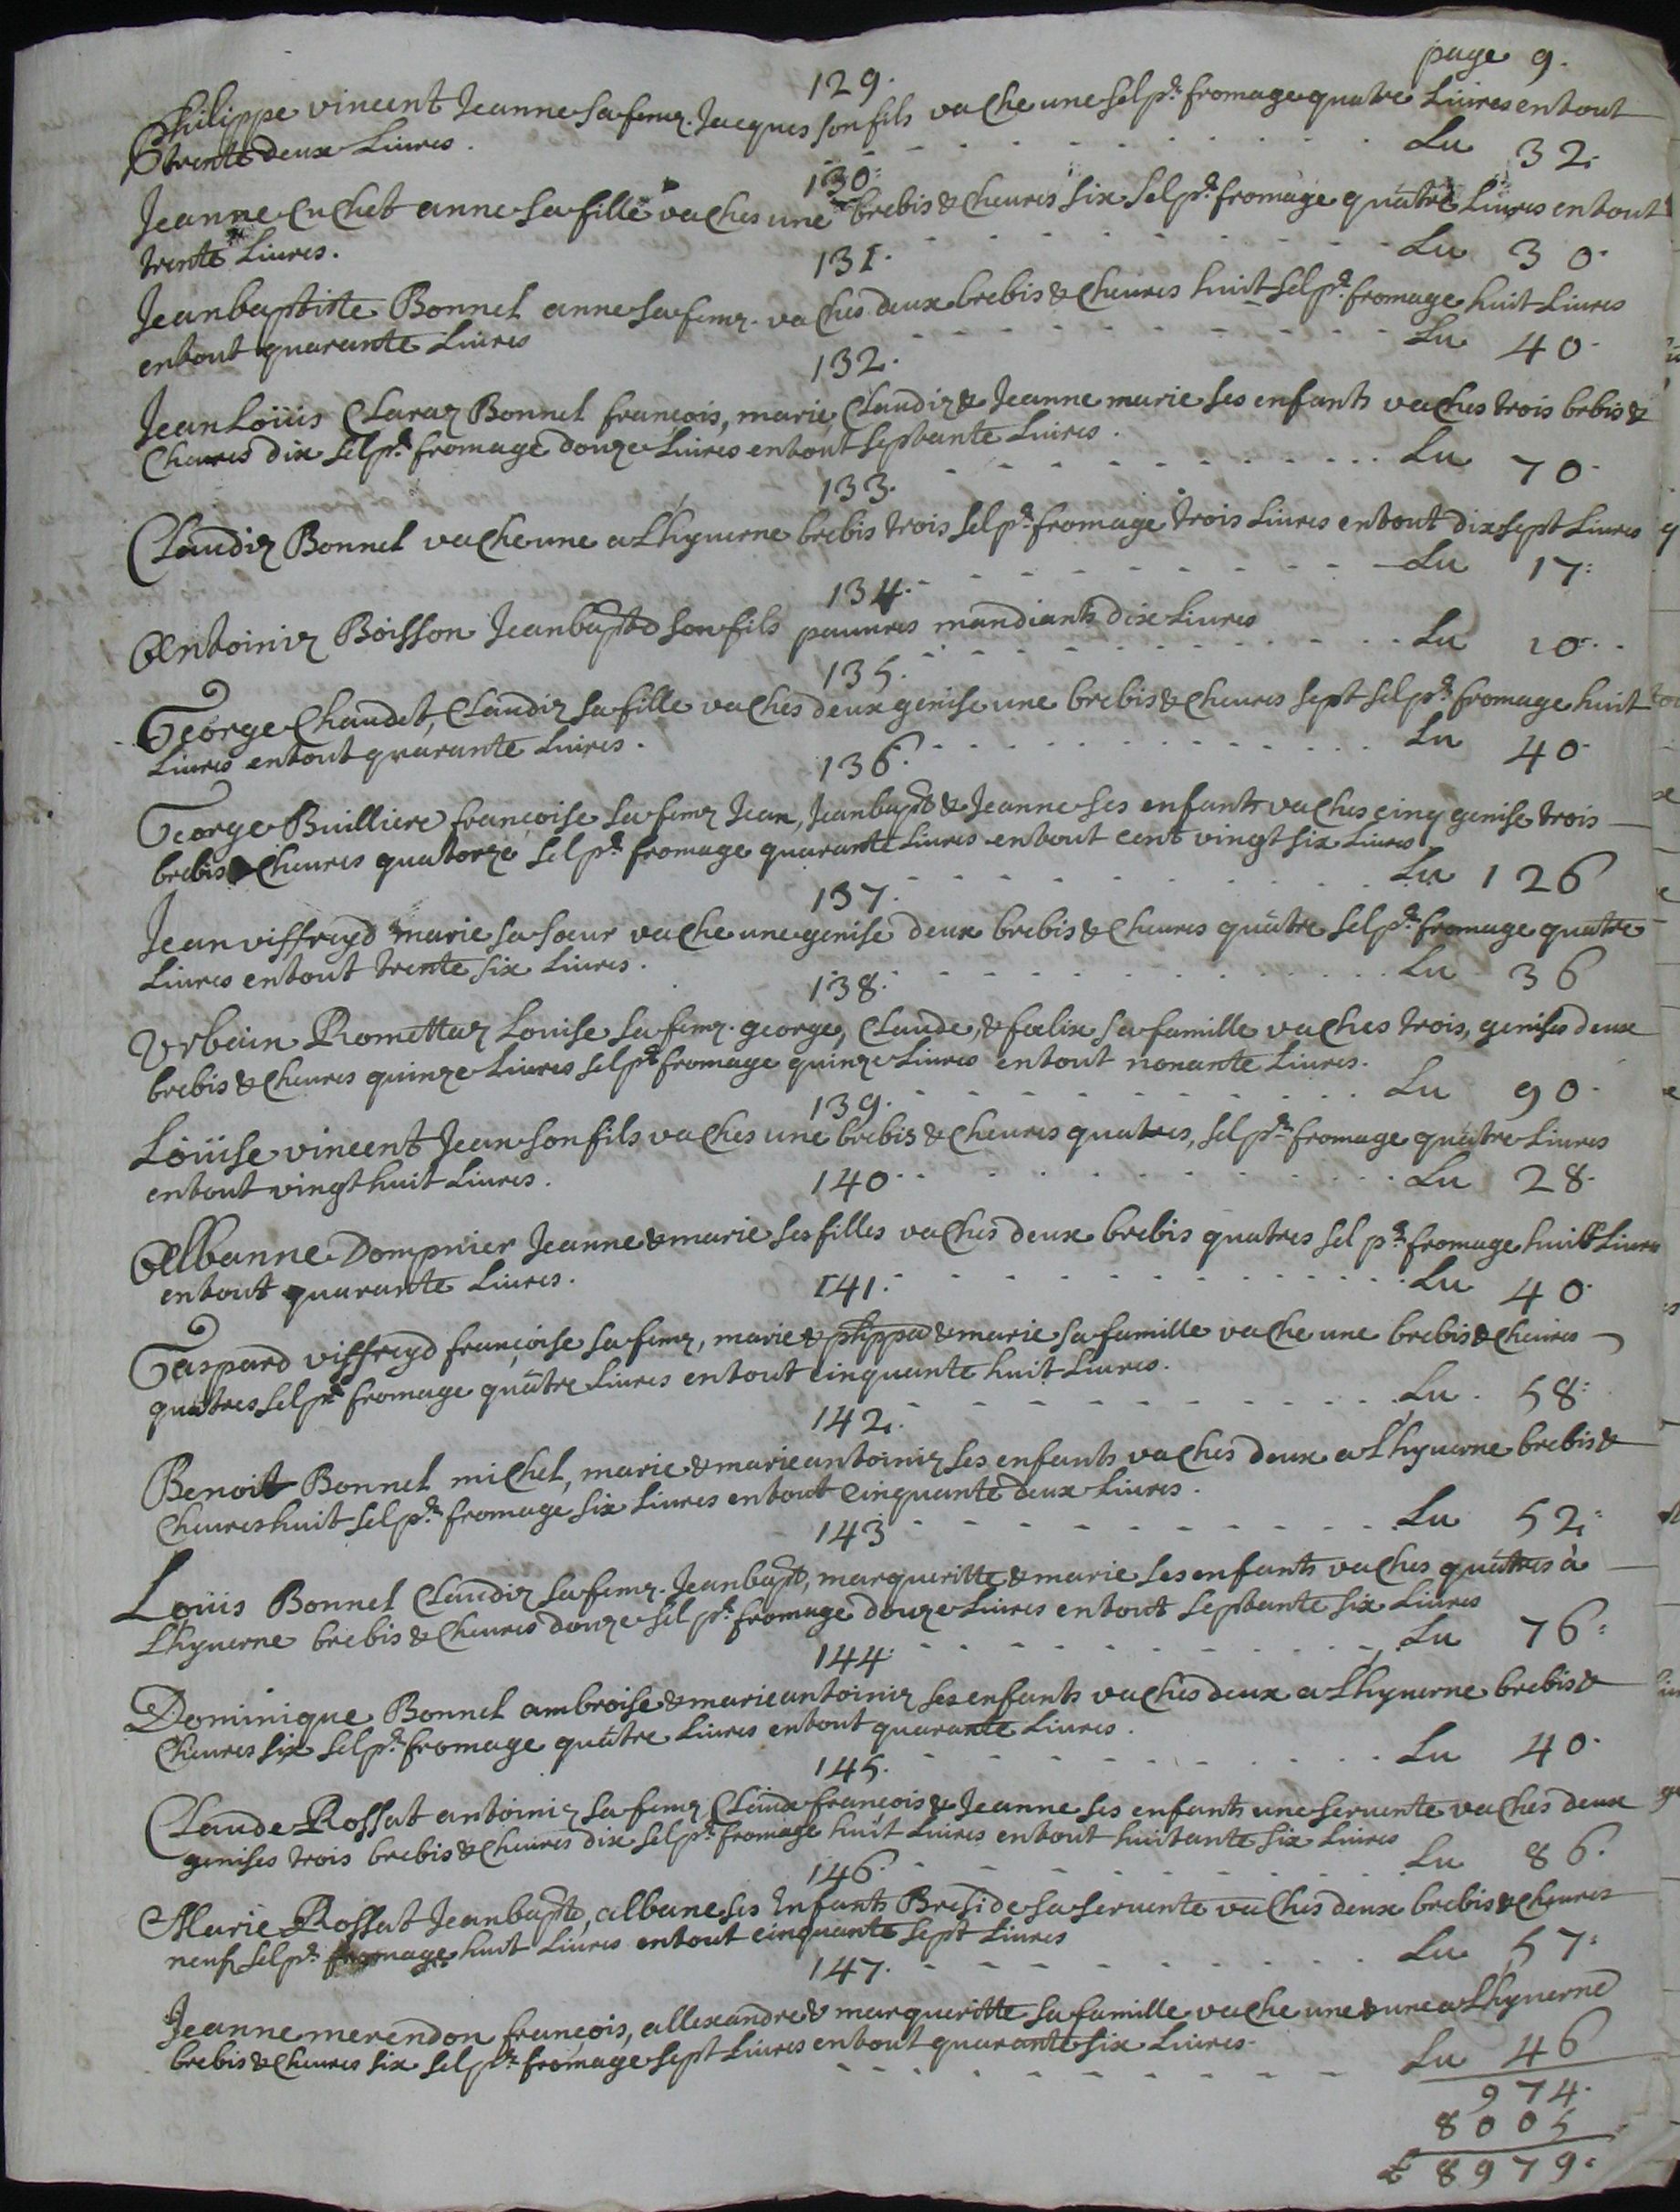 page 9.
129.
Philippe vincent Jeanne sa feme. Jacques son fils vache une sel pr fromage quatre Liures entout
trente deux Liures. Lu 32.
130.
Jeanne Cuchet anne sa fille vaches une brebis & cheures six sel pr fromage quatre Liures entout
trente Liures. Lu 30.
131.
Jeanbaptiste Bonnel anne sa feme. vaches deux brebis & cheures huit sel pr fromage huit Liures
entout quarante Liures Lu 40.
132.
Jean Loüis Claraz Bonnel françois, marie, Claudiz & Jeanne marie ses enfants vaches trois bebis &
cheures dix sel pr fromage douze Liures entout septante Liures. Lu 70.
133.
Claudiz Bonnel vache une a Lhyuerne brebis trois sel pr fromage trois Liures entout dixsept Liures
Lu 17.
134.
Antoiniz Boisson Jeanbapte son fils pauures mandiants dix Liures Lu 10.
135.
George Chaudet, Claudiz sa fille vaches deux genise une brebis & cheures sept sel pr fromage huit
Liures entout quarante Liures. Lu 40.
136.
George Buillierė françoise sa feme Jean, Jeanbapt & Jeanne ses enfants vaches cinq genise trois
brebis & cheures quatorze sel pr fromage quarante Liures entout cent vingt six Liures
Lu 126
137.
Jean viffreyd marie sa soeur vache une genise deux brebis & cheures quatre sel pr fromage quatre
Liures entout trente six Liures. Lu 36
138.
Vrbain Romettaz Louise sa feme. george, Claude, & foelix sa famille vaches trois, genises deux
brebis & cheures quinze Liures sel pr fromage quinze Liures entout nonante Liures.
Lu 90.
139.
Loüise vincent Jean son fils vaches une brebis & cheures quatres, sel pr fromage quatre Liures
entout vingt huit Liures. Lu 28.
140.
Albanne Dompnier Jeanne & marie ses filles vaches deux brebis quatres sel pr fromage huit Liures
entout quarante Liures. Lu 40.
141.
Gaspard viffreyd françoise sa feme, marie & phippa & marie sa famille vache une brebis & cheures
quatres sel pr fromage quatre Liures entout cinquante huit Liures. Lu 58.
142.
Benoit Bonnel michel, marie & marieantoiniz ses enfants vaches deux a Lhyuerne brebis &
cheures huit sel pr fromage six Liures entout cinquante deux Liures. Lu 52.
143
Loüis Bonnel Claudiz sa feme. Jeanbapt, margueritte & marie ses enfants vaches quatres à
Lhyuerne brebis & cheures douze sel pr fromage douze Liures entout septante six Liures
Lu 76.
144.
Dominique Bonnel ambroise & marieantoiniz ses enfants vaches deux a Lhyuerne brebis &
cheures six sel pr fromage quatre Liures entout quarante Liures. Lu 40.
145.
Claude Rossat antoiniz sa feme Claude françois & Jeanne ses enfants une seruente vaches deux
genises trois brebis & cheures dix sel pr fromage huit Liures entout huitante six Liures Lu 86.
146.
Marie Rossat Jeanbapte, albane ses Enfants Breside sa seruente vaches deux brebis & cheures
neuf sel pr fromage huit Liures entout cinquante sept Liures Lu 57.
147.
Jeanne merendon françois, allexandre & margueritte sa famille vache une & une a Lhyuerne
brebis & cheures six sel pr fromage sept Liures entout quarante six Liures. Lu 46
974.
8005
£ 8979.